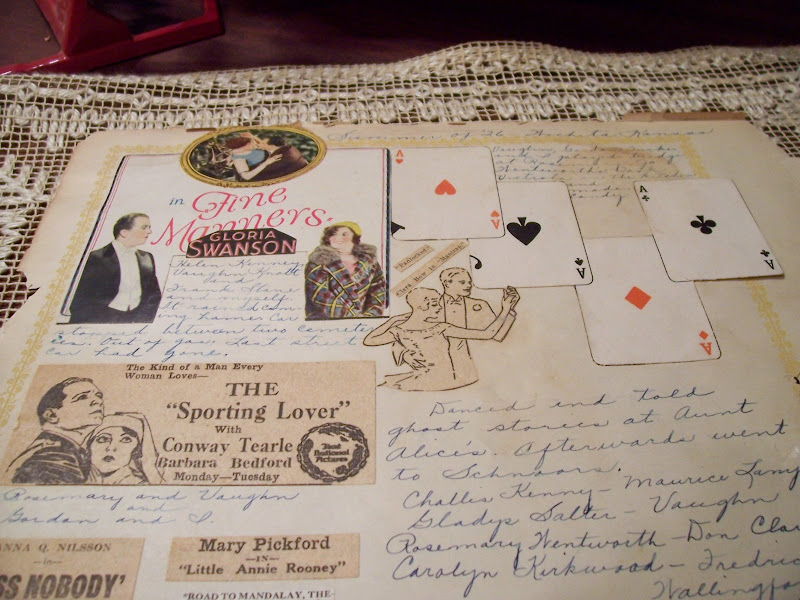 Summer of 26 Wichita Kansas
in
Fine
Manners.
GLORIA
SWANSON
Helen Kenney
Vaughn
and
and myself.
It rained com
ing home. Car
stopped between two cemeter
ies. Out of gas. Last street
car had gone.
A
A
A
A
A
A
The Kind of a Man Every
Woman Loves—
THE
"Sporting Lover"
With
Conway Tearle
Barbara Bedford
Monday—Tuesday
First
National
Pictures
Rosemary and Vaughn
and
Gordon and I.
ANNA Q. NILSSON
—in—
SS NOBODY'
Mary Pickford
—IN—
"Little Annie Rooney"
"ROAD TO MANDALAY, THE-
Danced and told
ghost stories at Aunt
Alice's. Afterwards went
to Schnoors.
Challis Kenny - Maurice
Gladys Salter - Vaughn
Rosemary Wentworth - Don
Carolyn Kirkwood - Fredric
Wallingfo